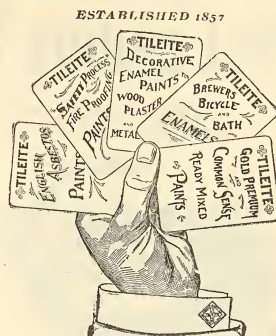 ESTABLISHED 1857
TILEITE
ENGLISH
ASBESTOS
PAINTS
TILEITE
SAFETY PROCESS
FIRE PROOFING
PAINTS
TILEITE
DECORATIVE
ENAMEL
PAINTS FOR
WOOD
PLASTER
AND
METAL
TILEITE
BREWERS
BICYCLE
AND
BATH
ENAMELS
TILEITE
GOLD PREMIUM
AND
COMMON SENSE
READY MIXED
PAINTS